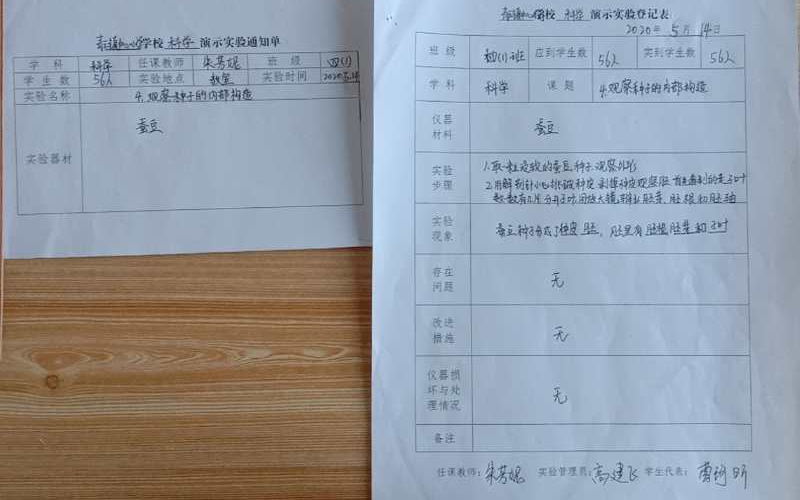 学校 科学 演示实验通知单
学科 科学 任课教师 朱芳妮 班级 四(1)
学生数 56人 实验地点 教室 实验时间 2020.5.14
实验名称 4.观察种子的内部构造
实验器材 蚕豆
学校 科学 演示实验登记表
2020年5月14日
班级 四(1)班 应到学生数 56人 实到学生数 56人
学科 科学 课题 4.观察种子的内部构造
仪器材料 蚕豆
实验步骤 1.取一粒浸软的蚕豆种子,观察外形
2.用解剖针小心挑破种皮,剥掉种皮观察胚 首先看到的是子叶
数数有几片 分开子叶,用放大镜 胚芽、胚根和胚轴
实验现象 蚕豆种子分成了种皮 胚,胚里有胚根胚芽和子叶
存在问题 无
改进措施 无
仪器损坏与处理情况 无
备注
任课教师:朱芳妮 实验管理员:高建飞 学生代表:曹